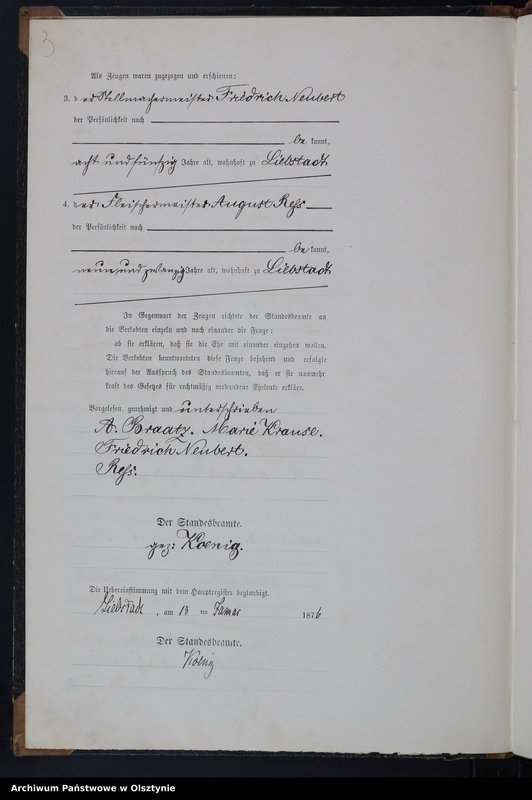 3
Als Zeugen waren zugezogen und erschienen:
3. der Stellmachermeister Friedrich Neubert
der Persönlichkeit nach
be kannt,
acht und fünfzig Jahre alt, wohnhaft zu Liebstadt
4. der Fleischermeister August Reß
der Persönlichkeit nach
be kannt,
neun und zwanzig Jahre alt, wohnhaft zu Liebstadt
In Gegenwart der Zeugen richtete der Standesbeamte an
die Verlobten einzeln und nach einander die Frage:
ob sie erklären, daß sie die Ehe mit einander eingehen wollen.
Die Verlobten beantworteten diese Frage bejahend und erfolgte
hierauf der Ausspruch des Standesbeamten, daß er sie nunmehr
kraft des Gesetzes für rechtmäßig verbundene Eheleute erkläre.
Vorgelesen, genehmigt und unterschrieben
A. Braatz. Marie Krause.
Friedrich Neubert.
Reß.
Der Standesbeamte.
gez: Koenig.
Die Uebereinstimmung mit dem Hauptregister beglaubigt.
Liebstadt, am 13 ten Januar 1876
Der Standesbeamte.
Koenig
Archiwum Państwowe w Olsztynie